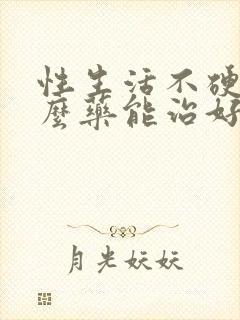 性生活不硬
麼藥能治好
月光妖妖